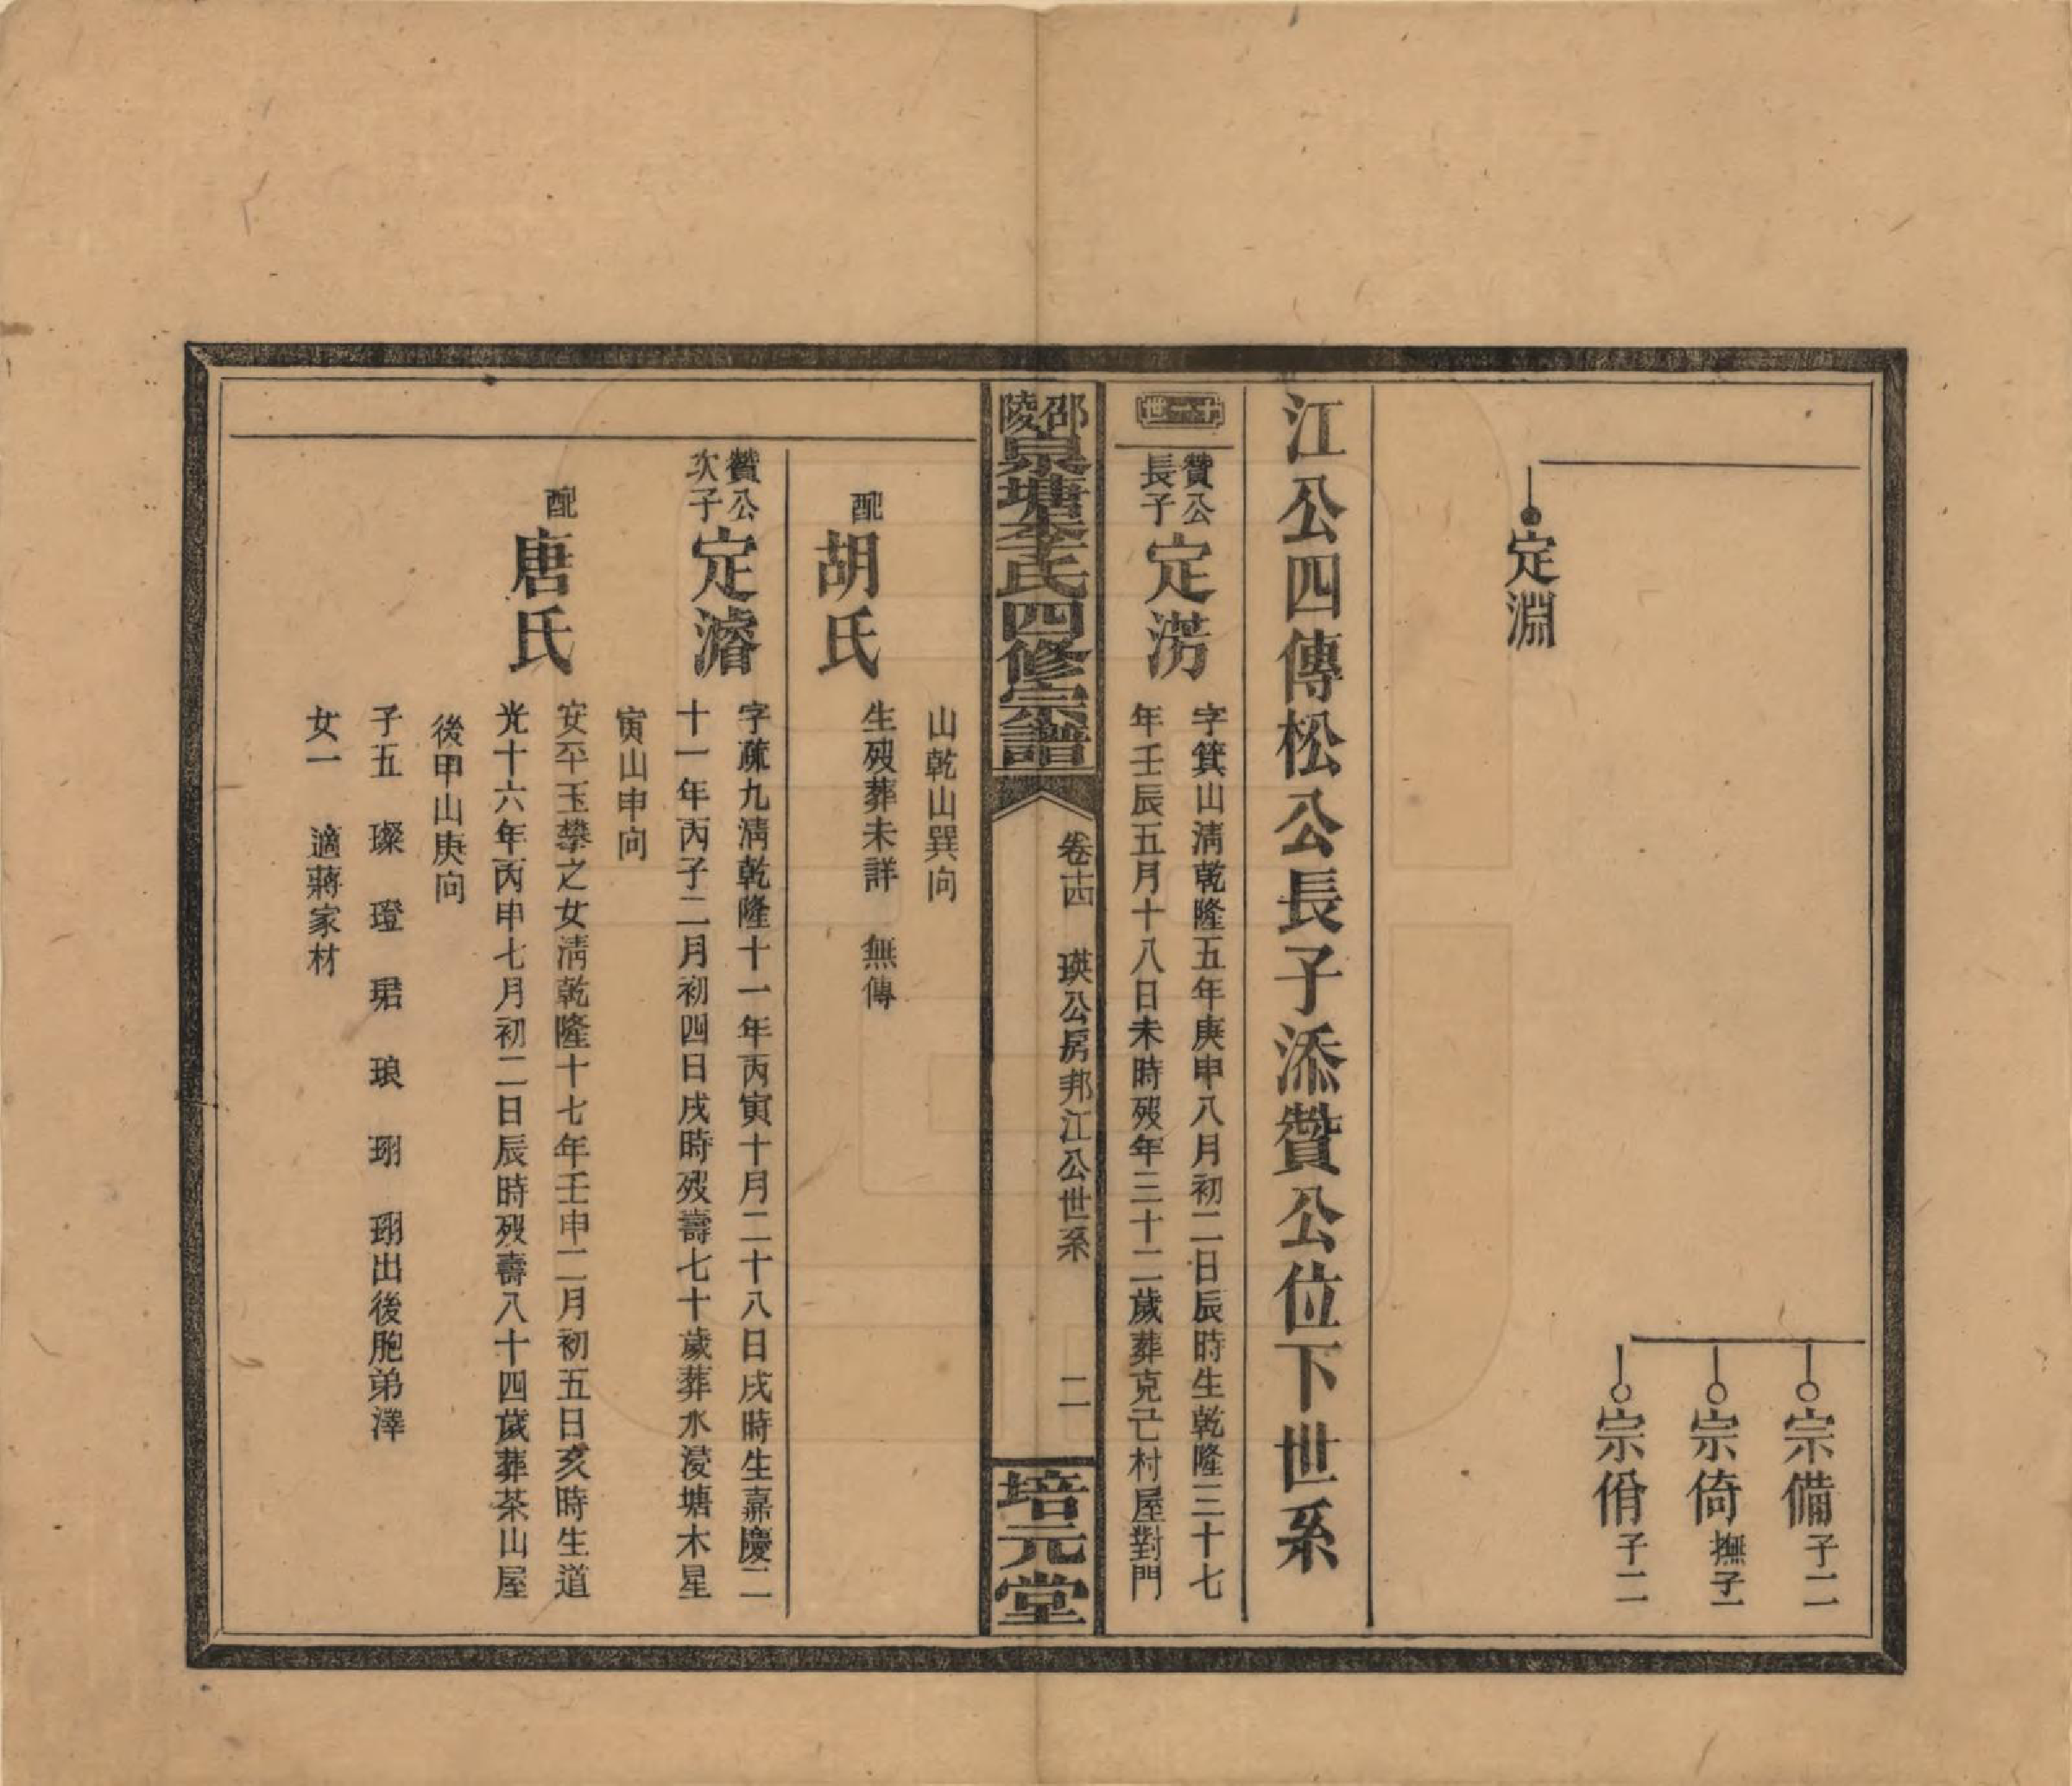 宗備 子二
宗倚 撫子一
宗佾 子二
定淵
江公四傳松公長子添贊公位下世系
十一世
贊公長子 定淓
字箕山清乾隆五年庚申八月初二日辰時生乾隆三十七
年壬辰五月十八日未時歿年三十二歲葬克己村屋對門
邵陵泉塘李氏四修宗譜
卷十四 瑛公房邦江公世系 二
培元堂
山乾山巽向
配 胡氏
生歿葬未詳 無傳
贊公次子 定濬
字疏九清乾隆十一年丙寅十月二十八日戌時生嘉慶二
十一年丙子二月初四日戌時歿壽七十歲葬水浸塘木星
寅山申向
配 唐氏
安平玉攀之女清乾隆十七年壬申二月初五日亥時生道
光十六年丙申七月初二日辰時歿壽八十四歲葬茶山屋
後甲山庚向
子五 璨 璒 珺 琅 珝 珝出後胞弟澤
女一 適蔣家材